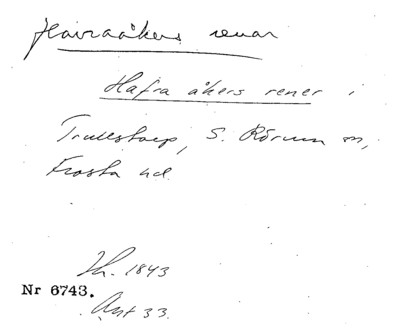 Havraåkers renar
Hafra åkers rener i
Trulstorp, S. Rörum sn,
Frosta hd.
Sk. 1843
Nr 6743.
Ant 33.